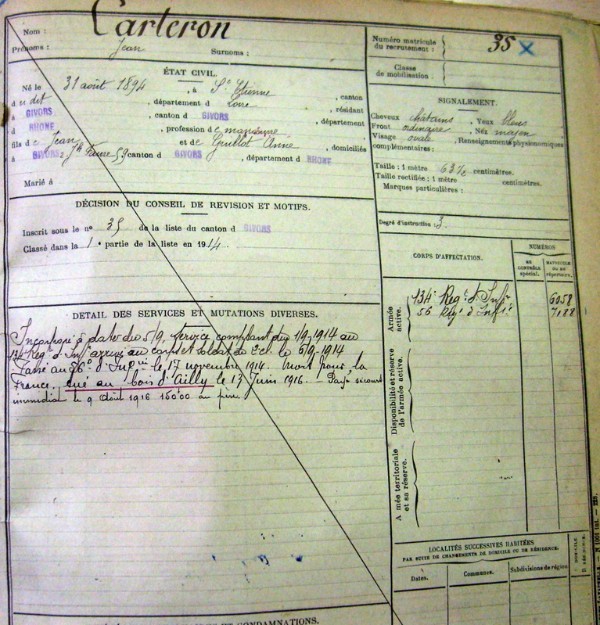 Nom : Carteron
Prénoms : Jean Surnoms :
Numéro matricule
du recrutement : 35
Classe
de mobilisation :
ÉTAT CIVIL.
Né le 31 août 1894, à St Etienne, canton
dudit, département d Loire, résidant
à GIVORS, canton d GIVORS, département
d RHONE, profession de
fils de Jean et de Anne, domiciliés
à GIVORS, 59 canton d GIVORS, département d RHONE
Marié à
SIGNALEMENT.
Cheveux châtains, Yeux bleus
Front ordinaire, Nez moyen
Visage ovale, Renseignements physionomiques
complémentaires :
Taille : 1 mètre 63½ centimètres.
Taille rectifiée : 1 mètre centimètres.
Marques particulières :
Degré d'instruction : 3
DÉCISION DU CONSEIL DE REVISION ET MOTIFS.
Inscrit sous le n° 35 de la liste du canton d GIVORS
Classé dans la 1e partie de la liste en 1914
CORPS D'AFFECTATION.
NUMÉROS
AU
CONTRÔLE
spécial.
MATRICULE
OU AU
répertoire.
Armée
active.
134e Régt d'Infie 6058
56 Régt d'Infie 7188
Disponibilité et réserve
de l'armée active.
Armée territoriale
et sa réserve.
DETAIL DES SERVICES ET MUTATIONS DIVERSES.
Incorporé à dater du 5/9, service comptant du 1/9/1914 au
Régt d'Inf arrivé au corps et soldat de 2e cl. le 5/9-1914
Passé au 56e d'Infie le 17 novembre 1914. Mort pour la
France, tué au bois d'Ailly le 13 Juin 1916. — Payé secours
immédiat le 9 Août 1916 150.00 au père
LOCALITÉS SUCCESSIVES HABITÉES
PAR SUITE DE CHANGEMENTS DE DOMICILE OU DE RÉSIDENCE.
Dates. Communes. Subdivisions de région
ET CONDAMNATIONS.